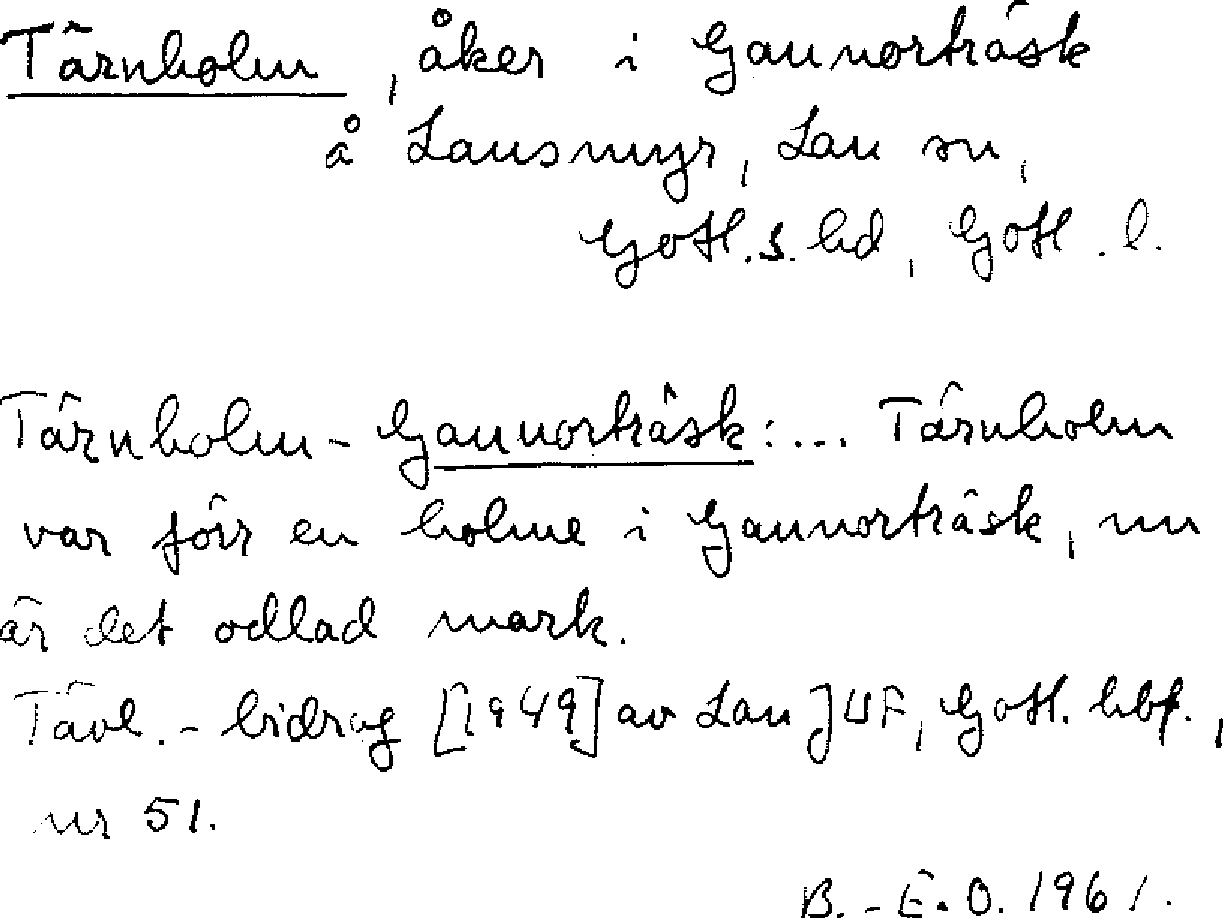 Tärnholm, åker i Gannorträsk
å Lausmyr, Lau sn,
Gotl. s. hd, Gotl. l.
Tärnholm - Gannorträsk: ... Tärnholm
var förr en holme i Gannorträsk, nu
är det odlad mark.
Tävl. - bidrag [1949] av Lau JUF, Gotl. hbf.,
nr 51.
B. - E. O. 1961.